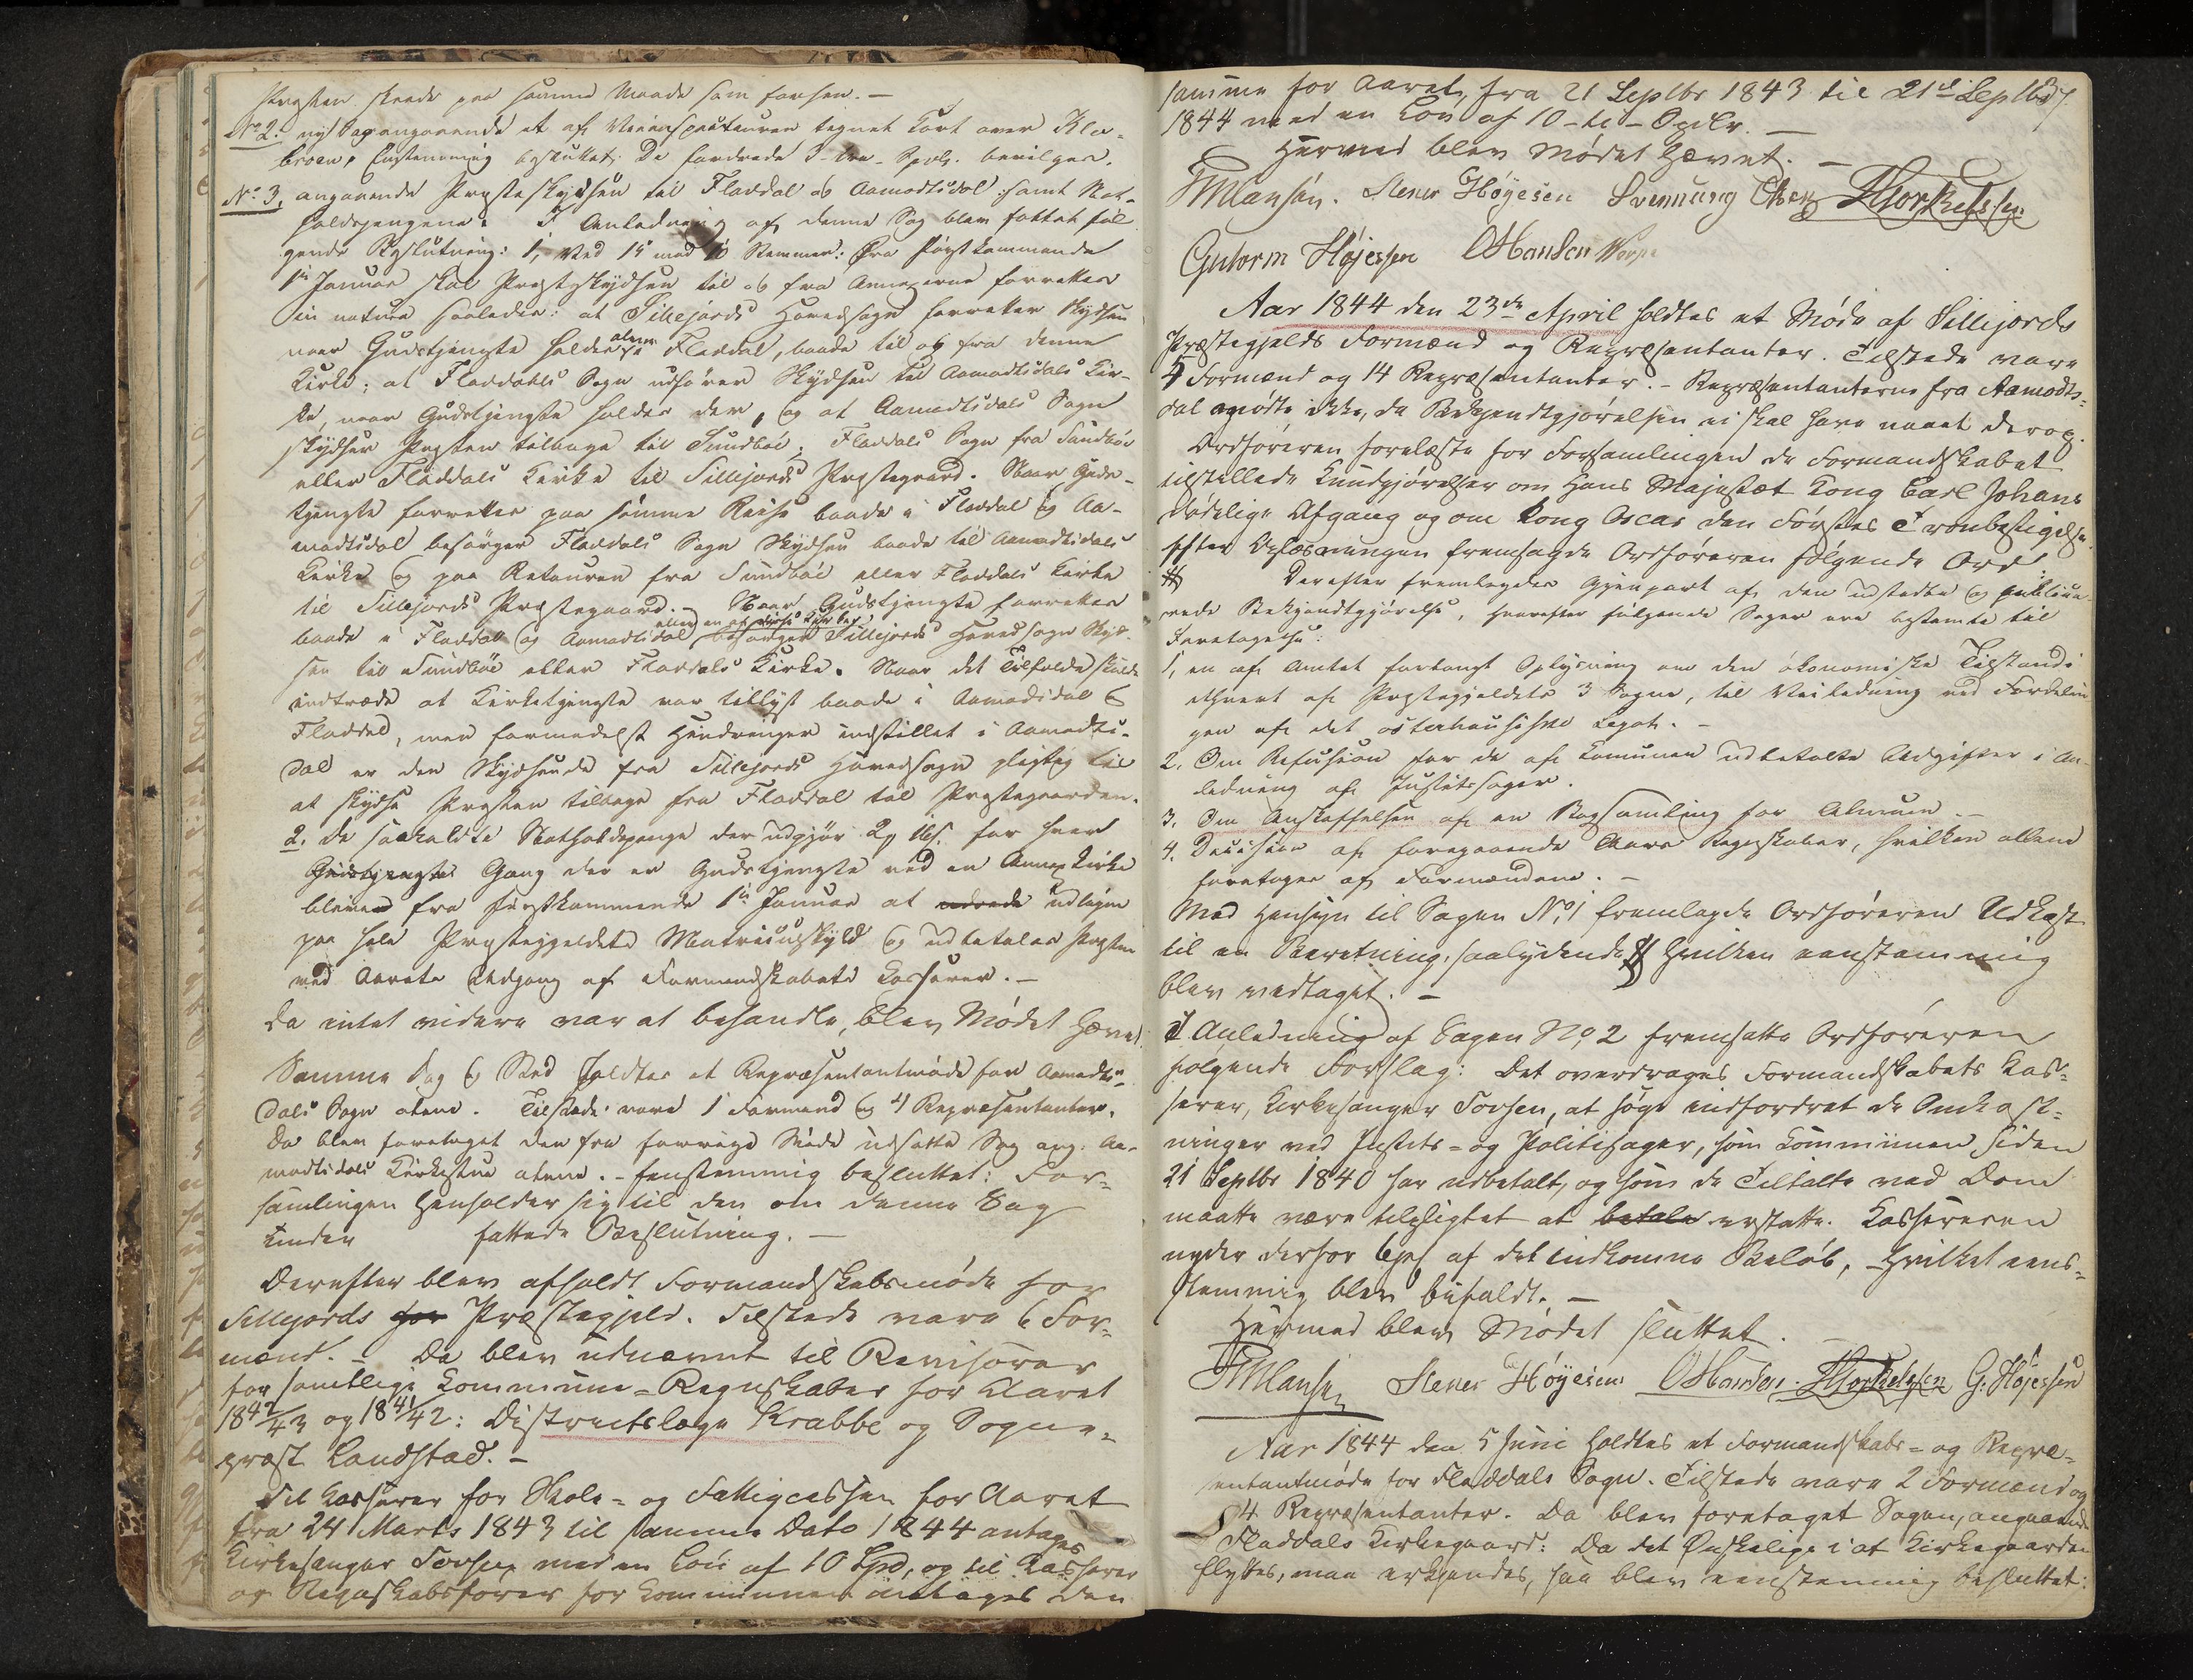 Præsten skeede paa samme Maade som forhen. —
No 2. nyt Sag angaaende et af Veiinspecteuren tegnet Kort over Kla-
broen, Eenstemmig besluttet: De fordrede 3 - tre - Spdlr. bevilges.
No 3, angaaende Præsteskydsen til Fladdal og Aamodtsdal samt Nat-
holdspengene. I Anledning af denne Sag blev fattet føl
gende Beslutning: 1, Ved 15 mod Stemmer: Fra førstkommende
1ste Januar skal Præsteskydsen til og fra Annexerne forrettes
in natura saaledes: at Sillejords Hovedsogn forretter Skydsen
naar Gudstjeneste holdes alene i Fladdal, baade til og fra denne
Kirke; at Fladdals Sogn udfører Skydsen til Aamodtsdals Kir-
ke, naar Gudstjeneste holdes der, og at Aamodtsdals Sogn
skydser Præsten tilbage til Sundbøe; Fladdals Sogn fra Sundbøe
eller Fladdals Kirke til Sillejords Præstegaard. Naar Guds-
tjeneste forrettes paa samme Reise baade i Fladdal og Aa-
modtsdal besørger Fladdals Sogn Skydsen baade til Aamodtsdals
Kirke og paa Retouren fra Sundbøe eller Fladdals Kirke
til Sillejords Præstegaard. Naar Gudstjeneste forrettes
baade i Fladdal og Aamodtsdal eller en af disse besørger Sillejords Hovedsogn Skyd-
sen til Sundbøe eller Fladdals Kirke. Naar det Tilfælde skulde
indtræde at Kirketjeneste var tillyst baade i Aamodtsdal og
Fladdal, men formedelst Hindringer indstillet i Aamodts-
dal er den Skydsende fra Sillejords Hovedsogn pligtig til
at skydse Præsten tilbage fra Fladdal til Præstegaarden.
2. De saakaldte Natholdspenge der udgjør 2 16 s. for hver
Gudstjeneste Gang der er Gudstjeneste ved en Annex Kirke
bliver fra førstkommende 1ste Januar at udrede udlignes
paa hele Præstegjeldets Matriculskyld og udbetales Præsten
ved Aarets Udgang af Formandskabets Casserer. —
Da intet videre var at behandle, blev Mødet hævet.
Samme Dag og Sted holdtes et Repræsentantmøde for Aamodts-
dals Sogn alene. Tilstede vare 1 Formand og 4 Repræsentanter.
Da blev foretaget den fra forrige Møde udsatte Sag ang. Aa-
modtsdals Kirkestue alene. - Eenstemmig besluttet: For-
samlingen henholder sig til den om denne Sag
tinden fattede Beslutning. —
Derefter blev afholdt Formandskabsmøde for
Sillejords for Præstegjeld. Tilstede vare 6 For-
mænd. - Da blev udnævnt til Revisorer
for samtlige Commune-Regnskaber for Aaret
1842/43 og 1841/42: Distrectslæge Krabbe og Sogne-
præst Landstad. -
Til Casserer for Skole- og Fattigcassen for Aaret
fra 24 Marts 1843 til samme Dato 1844 antages
Kirkesanger Tovsen med en Løn af 10 Spd, og til Casserer
og Regnskabsfører for Communen antages den
samme for Aaret, fra 21 Septbr 1843 til 21de Septbr
1844 med en Løn af 10 - ti - Spdlr. —
Hermed blev Mødet hævet. —
Hansen. Stener Høyesen Svennung Olsen HTorkelssen
Gutorm Højessen OHansen
Aar 1844 den 23de April holdtes et Møde af Sillejords
Præstegjelds Formænd og Repræsentanter. Tilstede vare
5 Formænd og 14 Repræsentanter. - Repræsentanterne fra Aamodts-
dal mødte ikke, da Bekjendtgjørelsen ei skal have naaet derop.
Ordføreren forelæste for Forsamlingen de Formandskabet
tilstillede Kundgjørelser om Hans Majestæt Kong Carl Johans
dødelige Afgang og om Kong Oscar den Førstes Tronbestigelse.
Efter Oplæsningen fremsagde Ordføreren følgende Ord
Derefter fremlagdes Gjenpart af den udstedte og publice-
rede Bekjendtgjørelse, hvorefter følgende Sager ere bestemte til
Foretagelse:
1, en af Amtet forlangt Oplysning om den økonomiske Tilstand i
ethvert af Præstegjeldets 3 Sogne, til Veiledning ved Fordelin
gen af det osterhausiske Legat. -
2. Om Refusion for de af Komunen udbetalte Udgifter i An-
ledning af Justitssager.
3. Om Anskaffelsen af en Bogsamling for Almuen. -
4. Decision af foregaaende Aars Regnskaber, hvilken allene
foretages af Formændene. -
Med Hensyn til Sagen No 1 fremlagde Ordføreren Udkast
til en Beretning, saalydende hvilken eenstemmig
blev vedtaget. -
I Anledning af Sagen No 2 fremsatte Ordføreren
følgende Forslag: Det overdrages Formandskabets Cas-
serer, Kirkesanger Tovsen, at søge indfordret de Omkost-
ninger ved Justits- og Politisager, som Communen siden
21 Septbr 1840 har udbetalt, og som de Tiltalte ved Dom
maatte være tilpligtet at betale erstatte. Cassereren
nyder derfor 6 pCt af det indkomne Beløb, - hvilket eens-
stemmig blev bifaldt. —
Hermed blev Mødet sluttet. —
Hansen Stener Høyesen OHansen. HTorkelssen G. Højessen
Aar 1844 den 5 Juni holdtes et Formandskabs- og Repræ-
sentantmøde for Fladdals Sogn. Tilstede vare 2 Formænd og
4 Repræsentanter. Da blev foretaget Sagen, angaaende
Fladdals Kirkegaard: Da det Ønskelige i at Kirkegaarden
flyttes, maa erkjendes, saa blev eenstemmig besluttet: